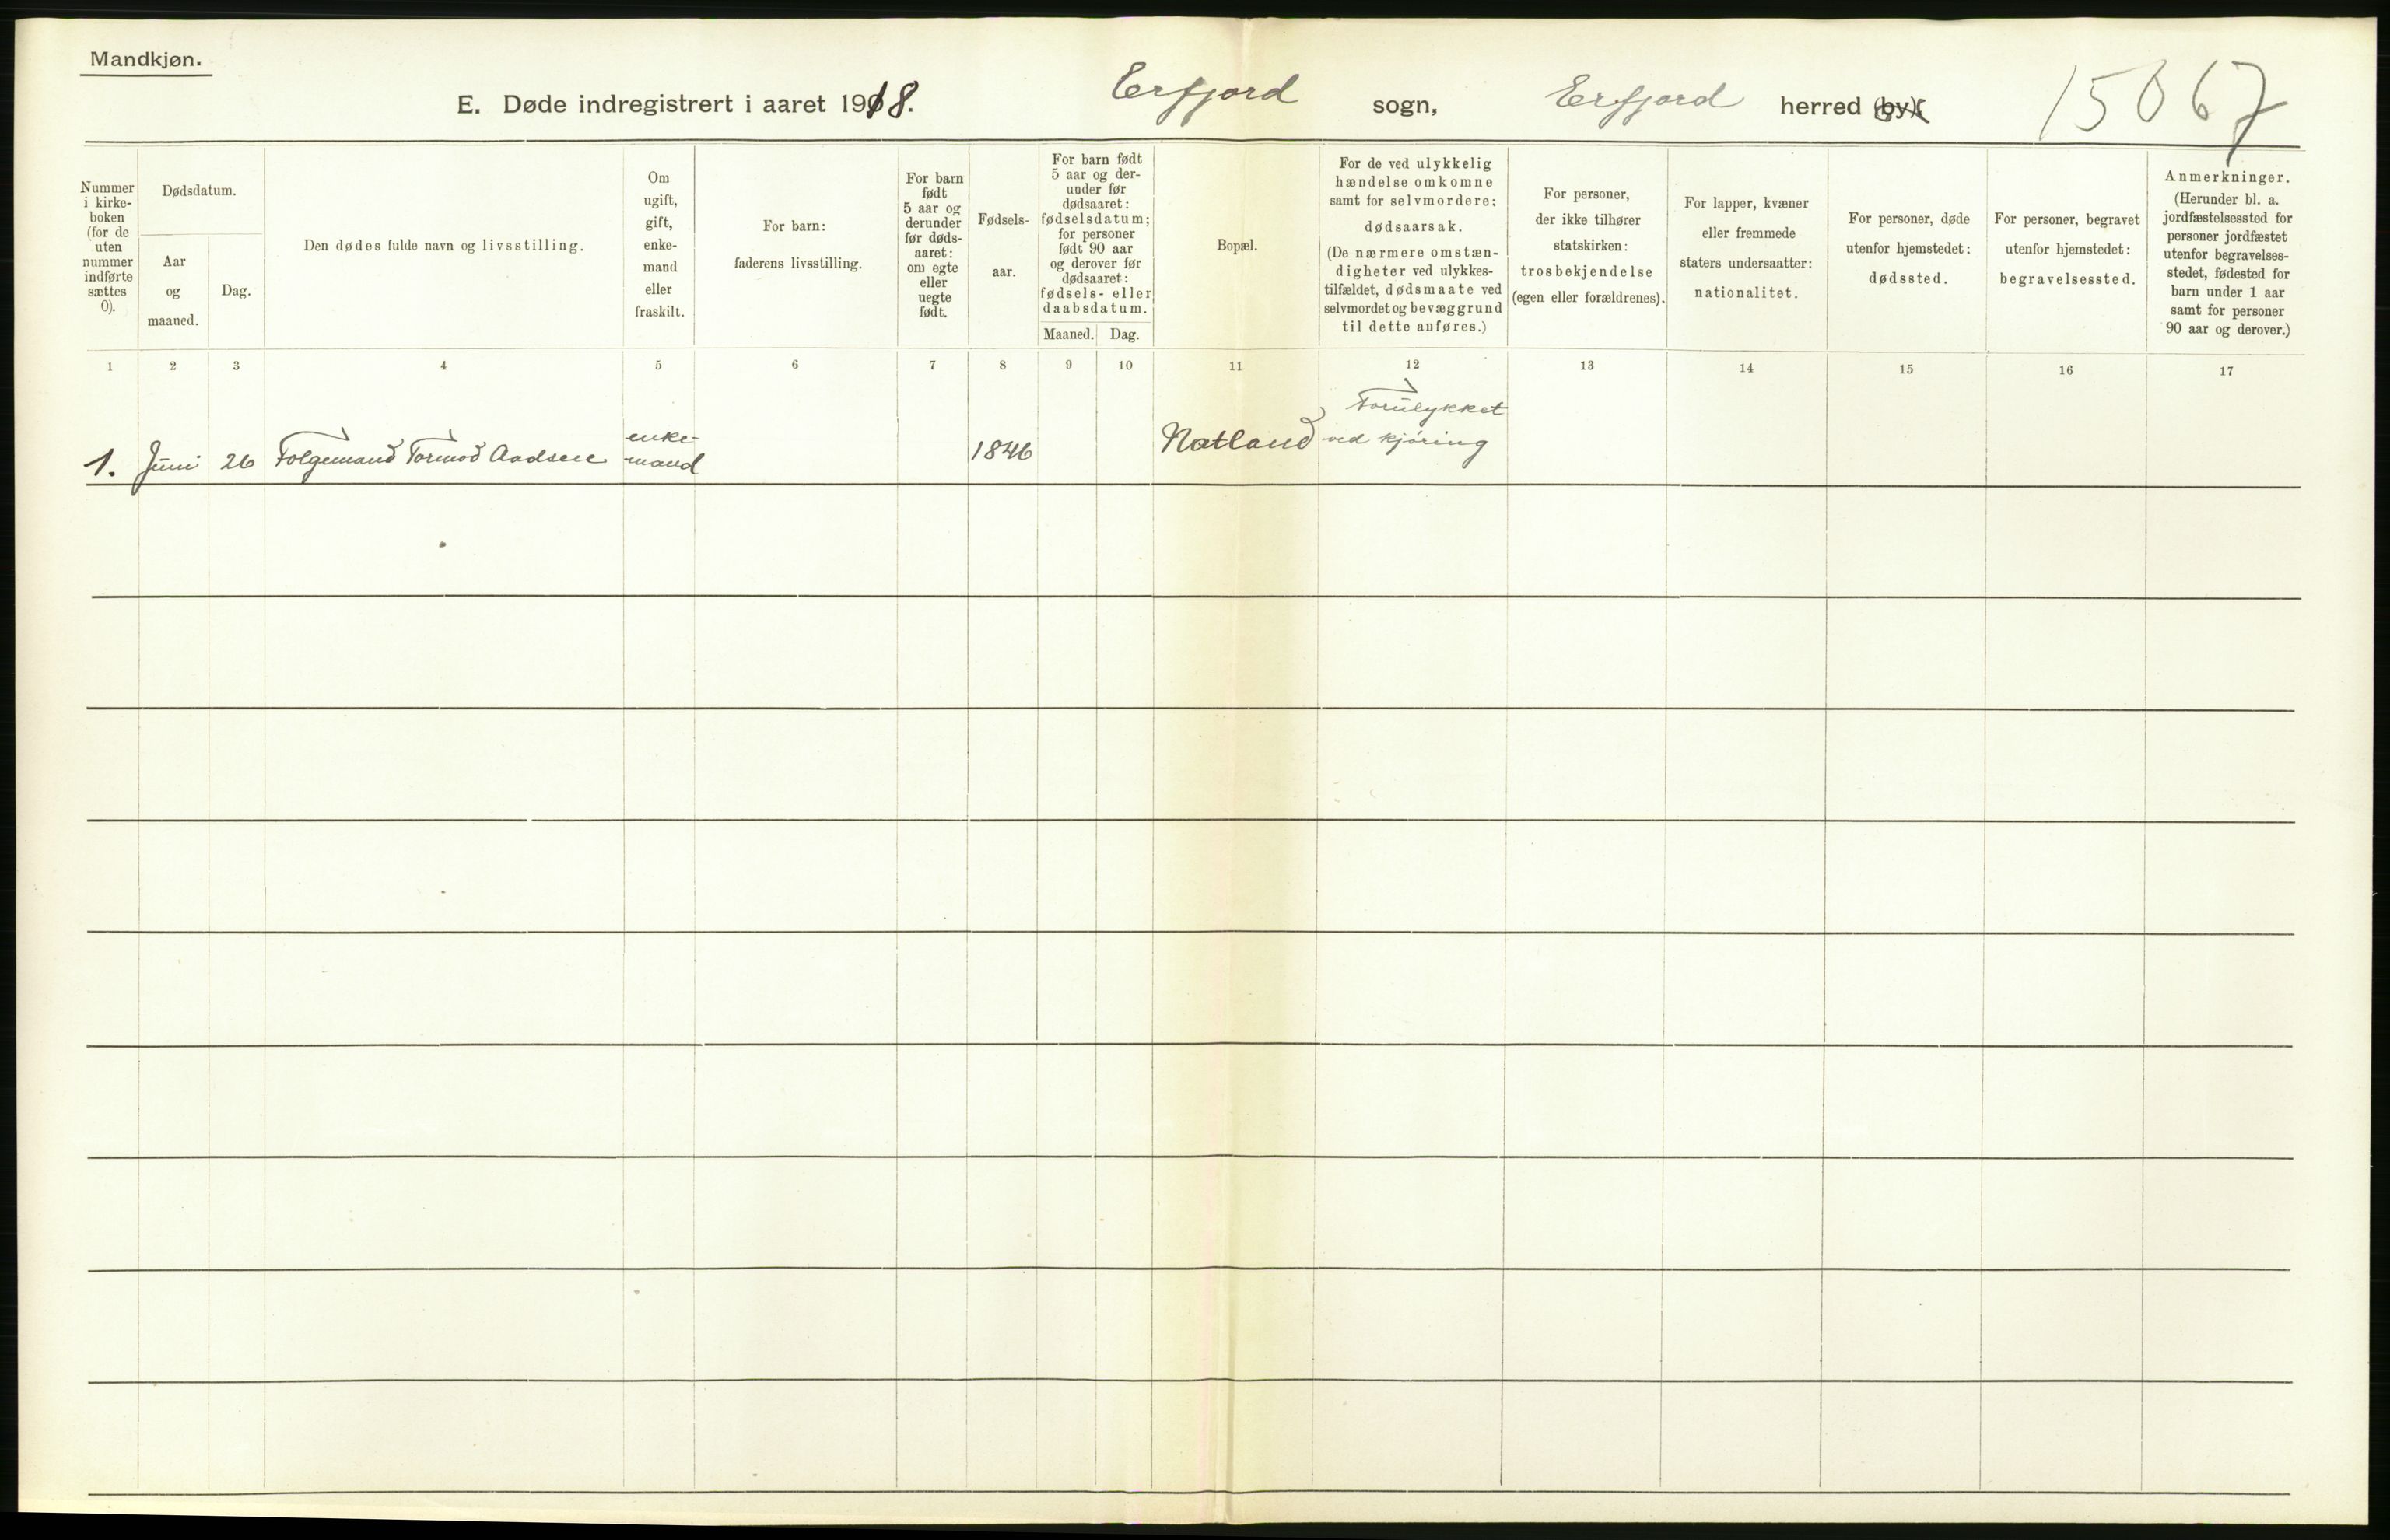 Mandkjøn.
E. Døde indregistrert i aaret 1918. Erfjord sogn, Erfjord herred (by). 15067
Nummer
i kirke-
boken
(for de
uten
nummer
indførte
sættes
0).
Dødsdatum.
Aar
og
maaned.
Dag.
Den dødes fulde navn og livsstilling.
Om
ugift,
gift,
enke-
mand
eller
fraskilt.
For barn:
faderens livsstilling.
For barn
født
5 aar og
derunder
før døds-
aaret:
om egte
eller
uegte
født.
Fødsels-
aar.
For barn født
5 aar og der-
under før
dødsaaret:
fødselsdatum;
for personer
født 90 aar
og derover før
dødsaaret:
fødsels- eller
daabsdatum.
Maaned. Dag.
Bopæl.
For de ved ulykkelig
hændelse omkomne
samt for selvmordere:
dødsaarsak.
(De nærmere omstæn-
digheter ved ulykkes-
tilfældet, dødsmaate ved
selvmordet og bevæggrund
til dette anføres.)
For personer,
der ikke tilhører
statskirken:
trosbekjendelse
(egen eller forældrenes).
For lapper, kvæner
eller fremmede
staters undersaatter:
nationalitet.
For personer, døde
utenfor hjemstedet:
dødssted.
For personer, begravet
utenfor hjemstedet:
begravelsessted.
Anmerkninger.
(Herunder bl. a.
jordfæstelsessted for
personer jordfæstet
utenfor begravelses-
stedet, fødested for
barn under 1 aar
samt for personer
90 aar og derover.)
1 2 3 4 5 6 7 8 9 10 11 12 13 14 15 16 17
1. Juni 26 Folgemand Tormod Aadsen
enke-
mand
1846
Natland
Forulykket
ved kjøring